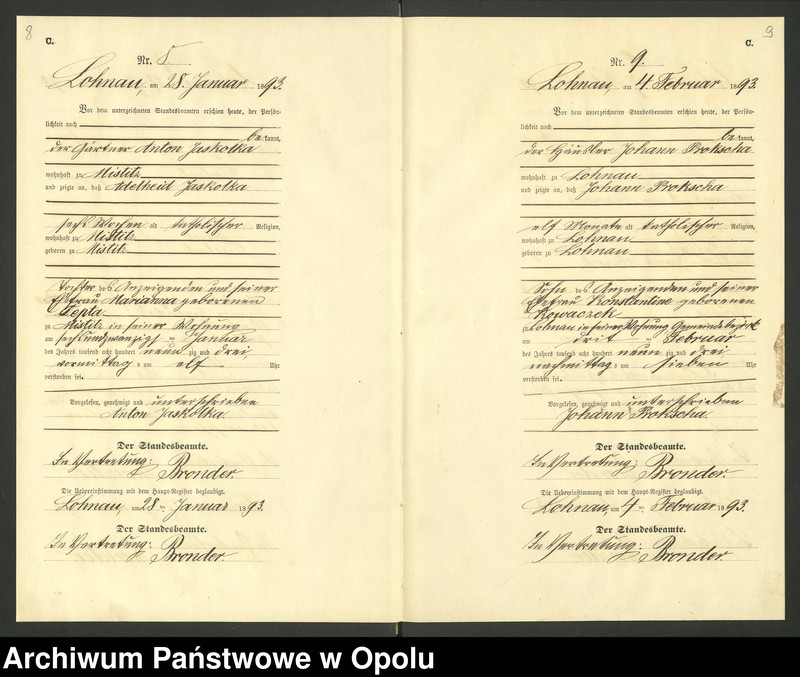 8
C.
Nr. 8.
Lohnau, am 28. Januar 1893.
Vor dem unterzeichneten Standesbeamten erschien heute, der Persön-
lichkeit nach
be kannt,
der Gärtner Anton Jaskolka
wohnhaft zu Mistitz
und zeigte an, daß Adelheid Jaskolka
sechs Wochen alt katholischer Religion,
wohnhaft zu Mistitz
geboren zu Mistitz
Tochter des Anzeigenden und seiner
Ehefrau Marianna geborenen
Cepta
zu Mistitz in seiner Wohnung
am sechsundzwanzigsten Januar
des Jahres tausend acht hundert neun zig und drei
vormittag s um elf Uhr
verstorben sei.
Vorgelesen, genehmigt und unterschrieben
Anton Jaskolka
Der Standesbeamte.
In Vertretung:
Bronder.
Die Uebereinstimmung mit dem Haupt-Register beglaubigt.
Lohnau, am 28 ten Januar 1893.
Der Standesbeamte.
In Vertretung:
Bronder
9
C.
Nr. 9.
Lohnau, am 4. Februar 1893.
Vor dem unterzeichneten Standesbeamten erschien heute, der Persön-
lichkeit nach
be kannt,
der Häusler Johann Prokscha
wohnhaft zu Lohnau
und zeigte an, daß Johann Prokscha
elf Monate alt katholischer Religion,
wohnhaft zu Lohnau
geboren zu Lohnau
Sohn des Anzeigenden und seiner
Ehefrau Konstantine geborenen
Kowaczek
zu Lohnau in seiner Wohnung Gemeindebezirk
am drit ten Februar
des Jahres tausend acht hundert neun zig und drei
nachmittag s um sieben Uhr
verstorben sei.
Vorgelesen, genehmigt und unterschrieben
Johann Prokscha
Der Standesbeamte.
In Vertretung:
Bronder.
Die Uebereinstimmung mit dem Haupt-Register beglaubigt.
Lohnau, am 4 ten Februar 1893.
Der Standesbeamte.
In Vertretung:
Bronder
Archiwum Państwowe w Opolu